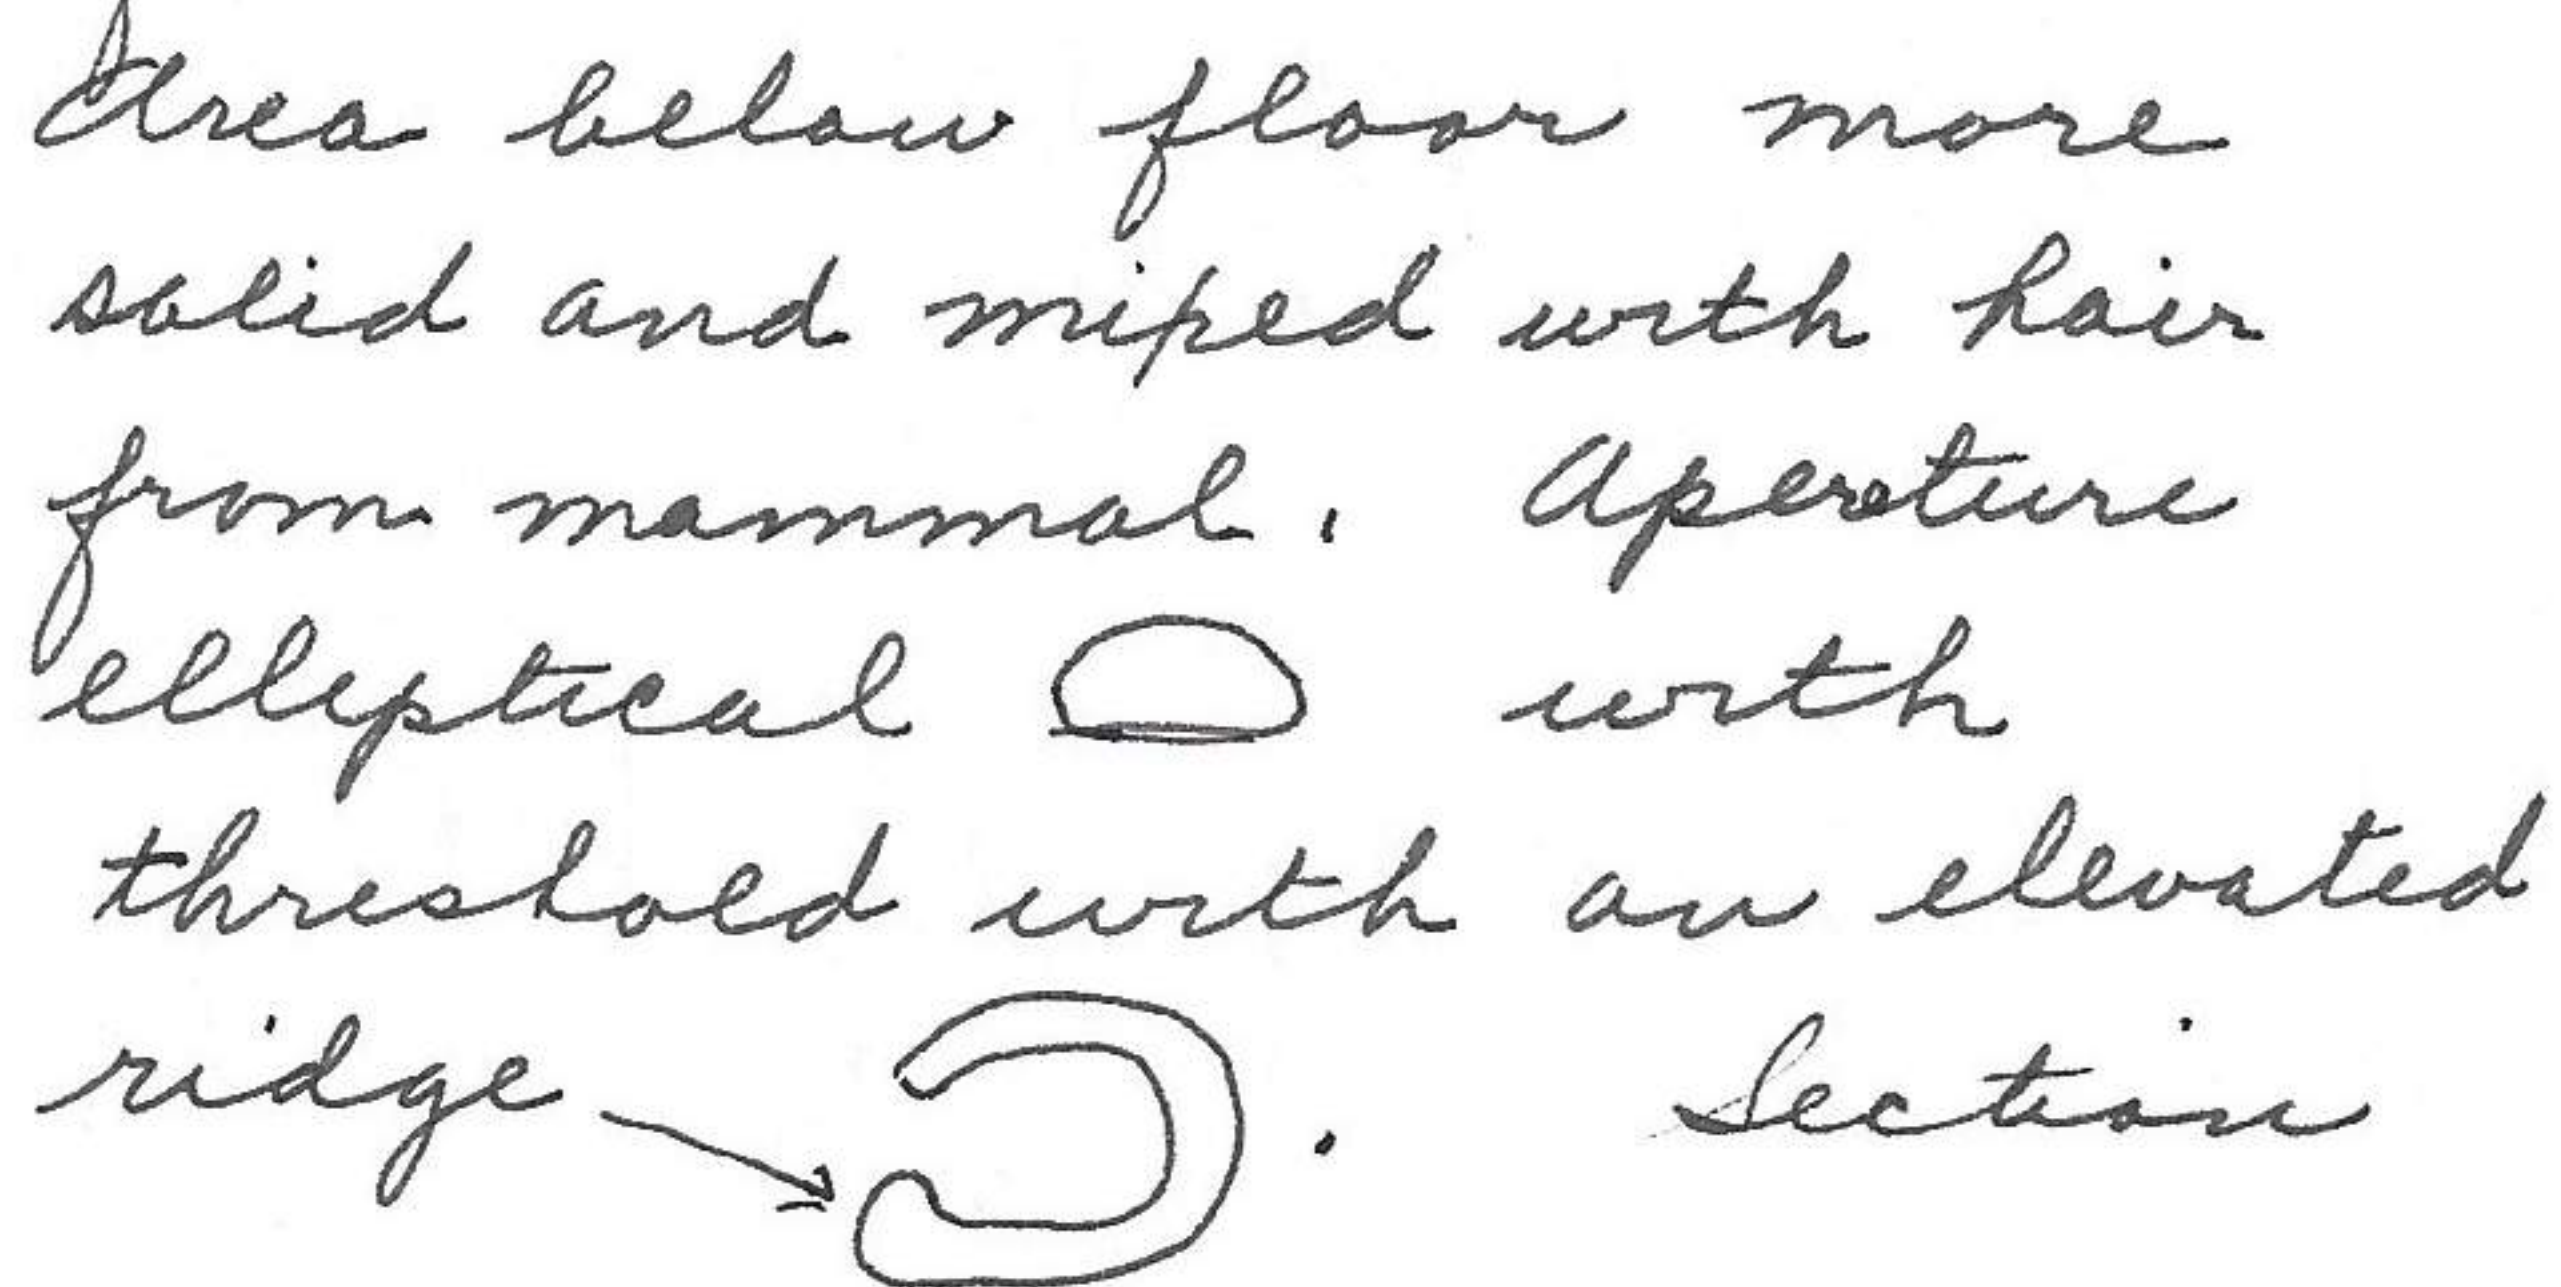 Area below floor more
solid and mixed with hair
from mammal. Aperture
elliptical with
threshold with an elevated
ridge . Section